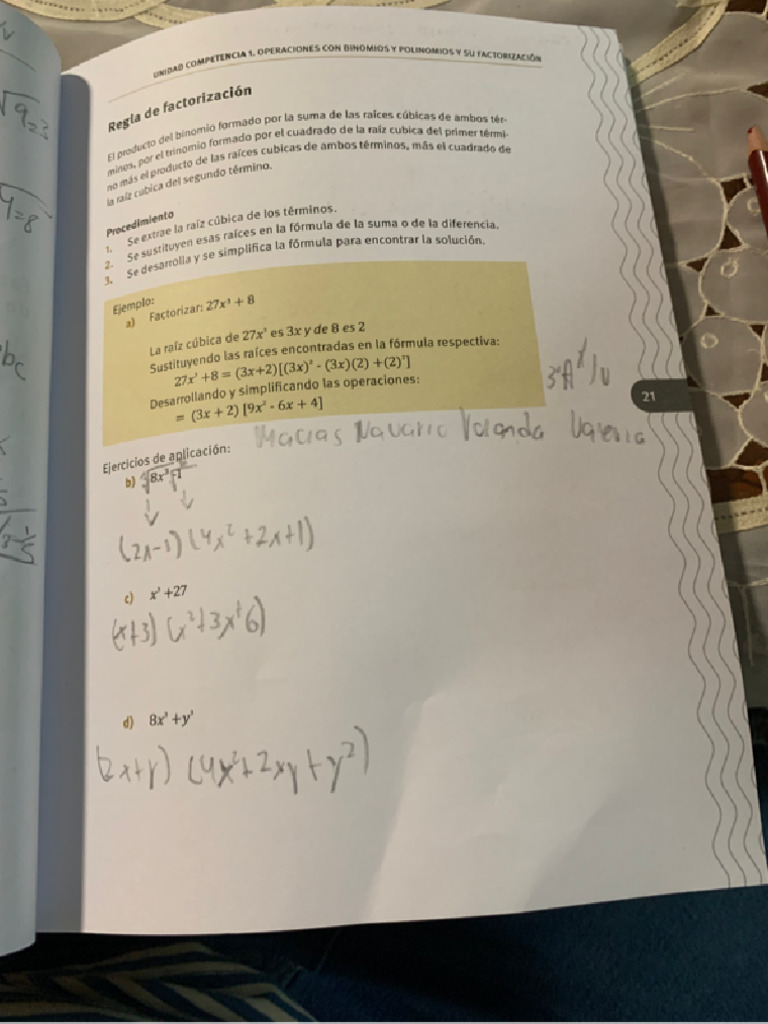 UNIDAD COMPETENCIA 1. OPERACIONES CON BINOMIOS Y POLINOMIOS Y SU FACTORIZACIÓN
Regla de factorización
El producto del binomio formado por la suma de las raíces cúbicas de ambos tér-
minos, por el trinomio formado por el cuadrado de la raíz cubica del primer térmi-
no más el producto de las raíces cubicas de ambos términos, más el cuadrado de
la raíz cúbica del segundo término.
Procedimiento
1. Se extrae la raíz cúbica de los términos.
2. Se sustituyen esas raíces en la fórmula de la suma o de la diferencia.
3. Se desarrolla y se simplifica la fórmula para encontrar la solución.
Ejemplo:
a) Factorizar: 27x³ + 8
La raíz cúbica de 27x³ es 3x y de 8 es 2
Sustituyendo las raíces encontradas en la fórmula respectiva:
27x³ +8 = (3x+2)[(3x)² - (3x)(2) + (2)²]
Desarrollando y simplificando las operaciones:
= (3x + 2) [9x² - 6x + 4]
21
Macias Navarro Yolanda Valeria
Ejercicios de aplicación:
b) 8x³ - 1
(2x-1) (4x² + 2x + 1)
c) x³ +27
(x+3) (x²+3x+6)
d) 8x³ +y³
(2x+y) (4x²+2xy+y²)
√9=3